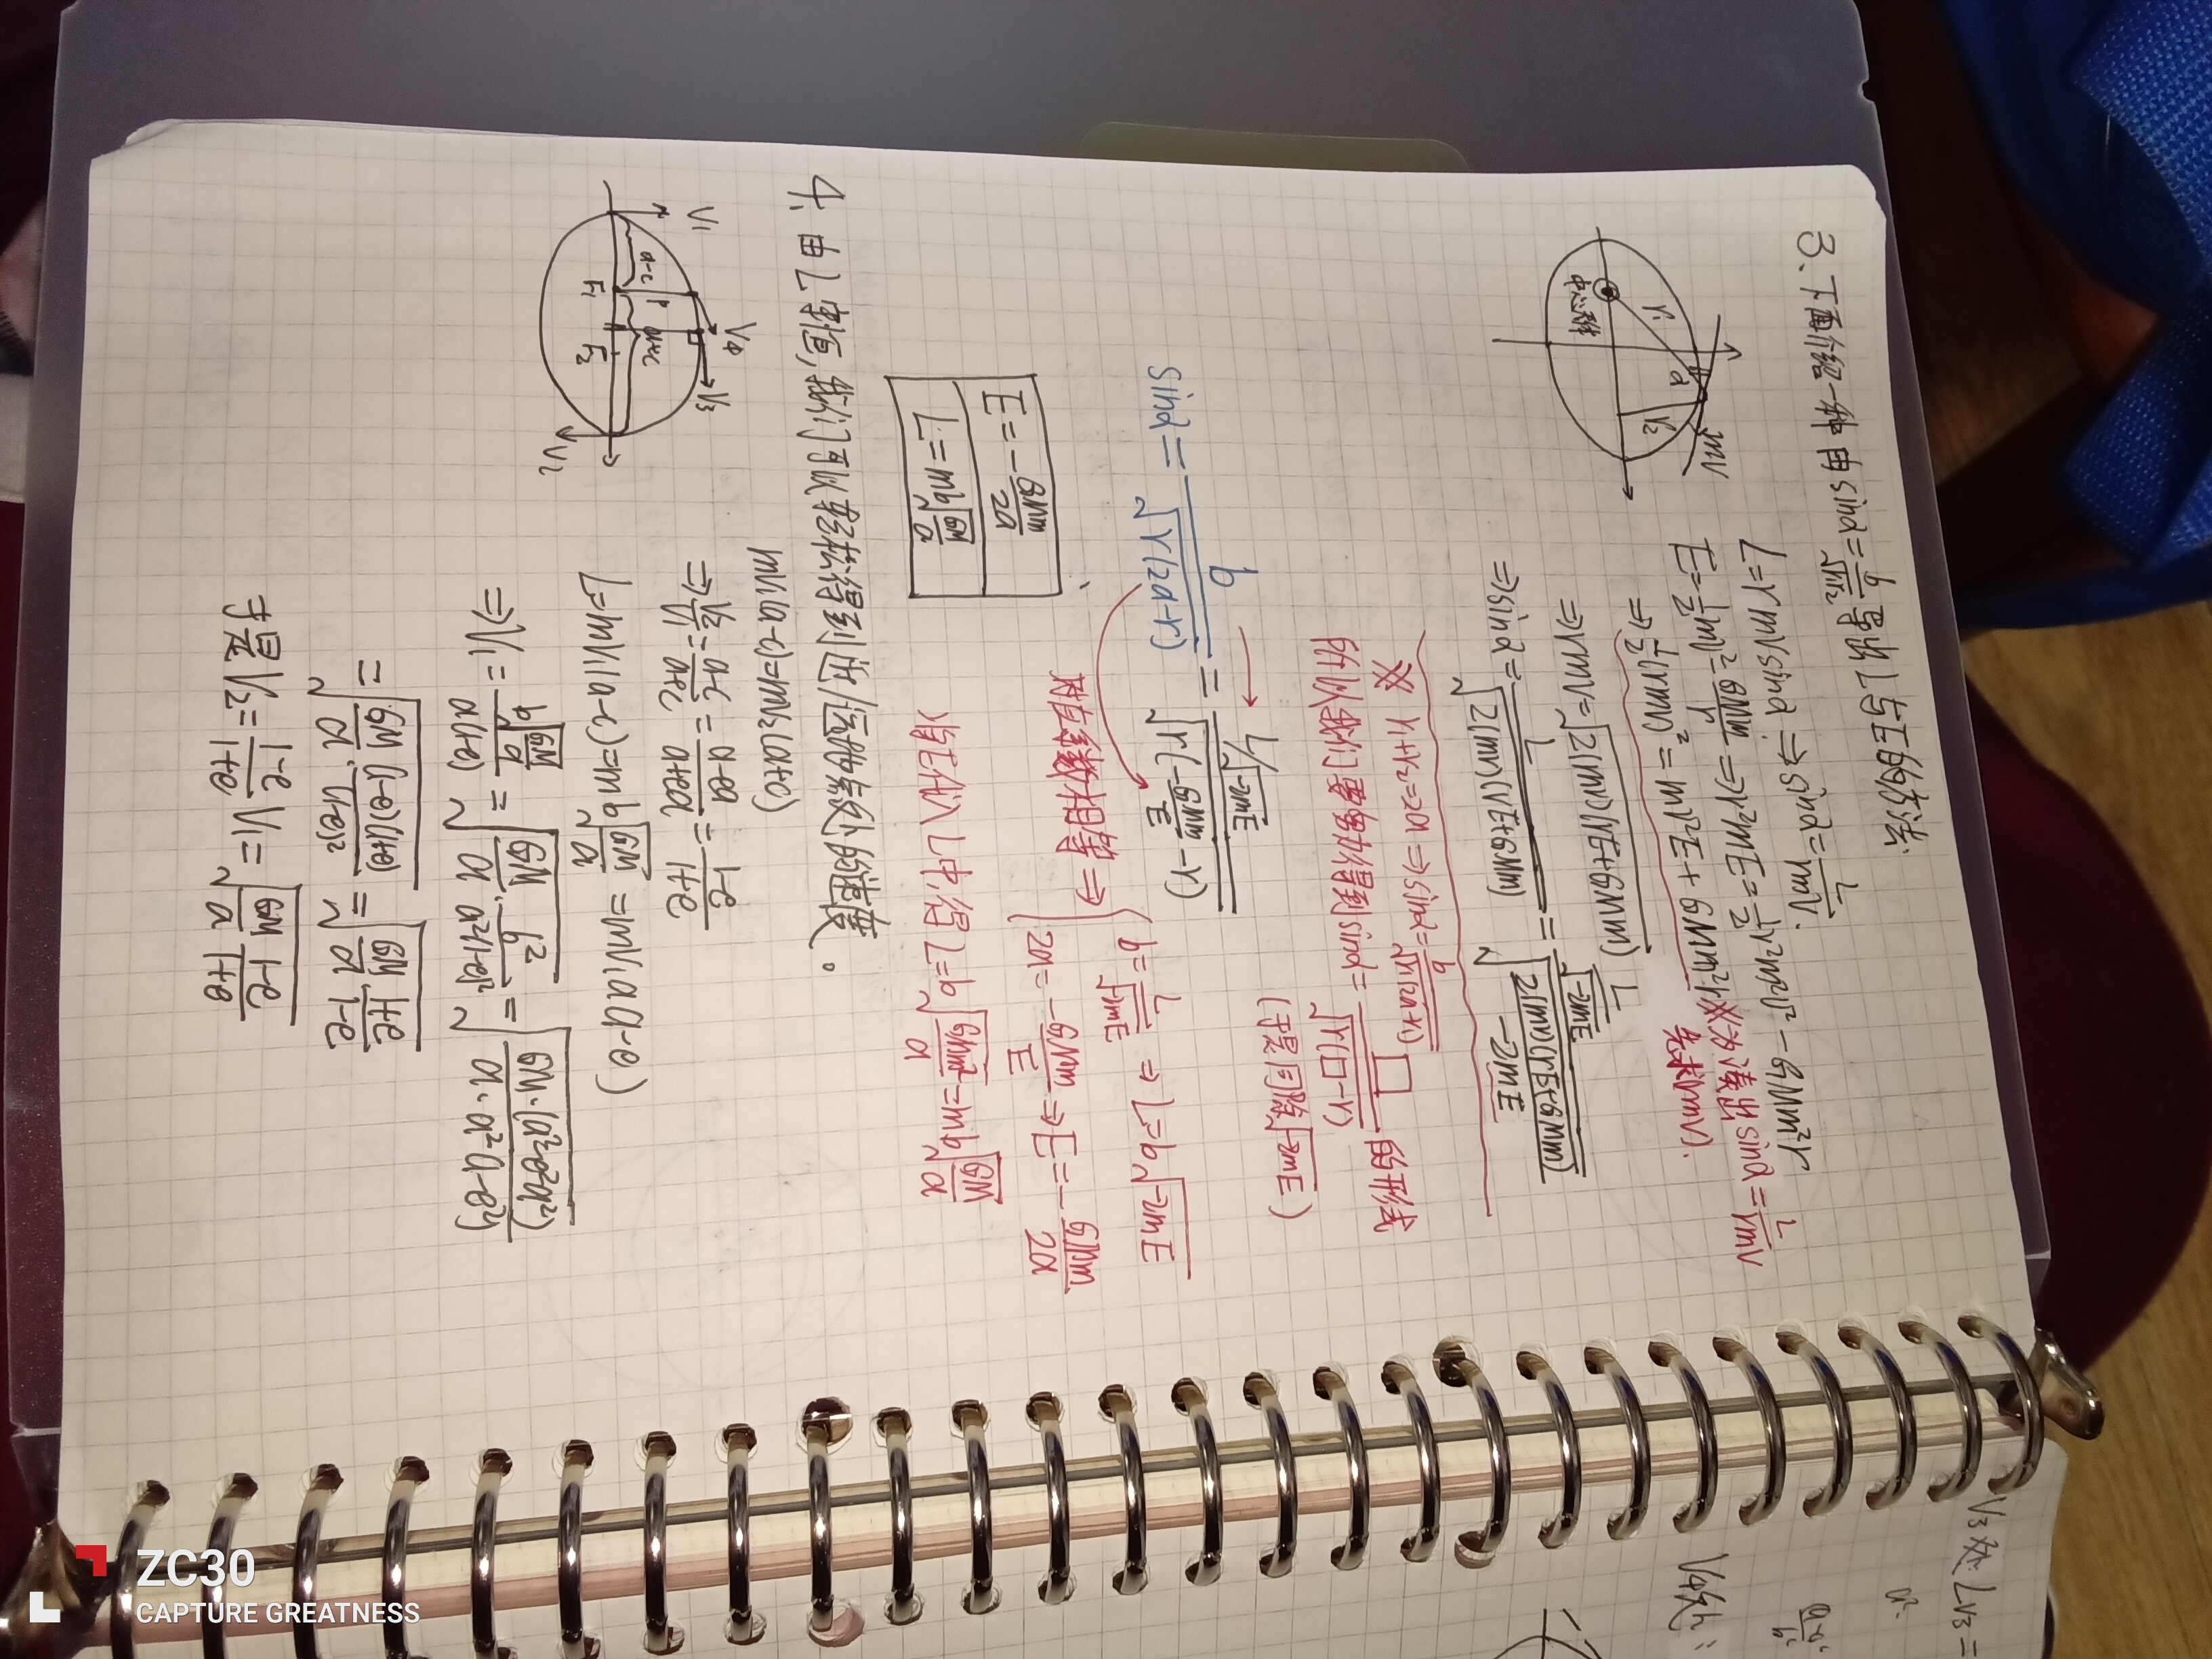 3.下面介绍一种由sinα=b/√(r₁r₂)导出L与E的方法
L=rmVsinα ⇒ sinα=L/(rmV).
E=½mV²-GMm/r ⇒ r²mE=½r²m²V²-GMm²r
⇒ ½(rmV)²=mr²E+GMm²r
为凑出sinα=L/(rmV)
去求(rmV).
⇒ rmV=√(2(mr)(rE+GMm))
⇒sinα=L/√(2(mr)(rE+GMm))=(L/√(-2mE))/√(2(mr)(rE+GMm)/(-2mE))
r₁+r₂=2a ⇒sinα=b/√(r₁(2a-r₁))
所以我们要努力得到sinα=□/√(r(□-r))的形式
(于是同除√(-2mE))
sinα=b/√(r(2a-r))=(L/√(-2mE))/√(r(-GMm/E-r))
对应系数相等⇒
b=L/√(-2mE) ⇒ L=b√(-2mE)
2a=-GMm/E ⇒E=-GMm/2a
将E代入L中,得L=b√(GMm²/a)=mb√(GM/a)
E=-GMm/2a
L=mb√(GM/a)
4.由L守恒,我们可以轻松得到近/远地点处的速度。
mV₁(a-c)=mV₂(a+c)
⇒V₂/V₁=(a-c)/(a+c)=(a-ea)/(a+ea)=(1-e)/(1+e)
L=mV₁(a-c)=mb√(GM/a)=mV₁a(1-e)
⇒V₁=b√(GM/a)/(a(1-e))=√(GM/a·b²/(a²(1-e)²))=√(GM·(a²-e²a²)/(a·a²(1-e)²))
=√(GM/a·(1-e)(1+e)/(1-e)²)=√(GM/a·(1+e)/(1-e))
于是V₂=(1-e)/(1+e)V₁=√(GM/a·(1-e)/(1+e))
中心天体
r₁
r₂
α
mV
V₁
V₂
V₃
V₄
a-c
a+c
P
F₁
F₂
V₃处:LV₃=
V₄处:
ZC30
CAPTURE GREATNESS